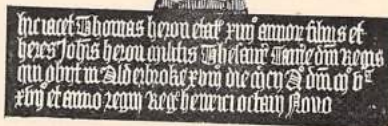 Hic iacet Thomas heron etat' xiiij annor' filius et
heres Joh'is heron militis Thesaur' Cam'e d'm Regis
qui obijt in Alderbroke xviij die m'cij A d'm m° v°
xvij et anno regni Reg' henrici octaui Nono